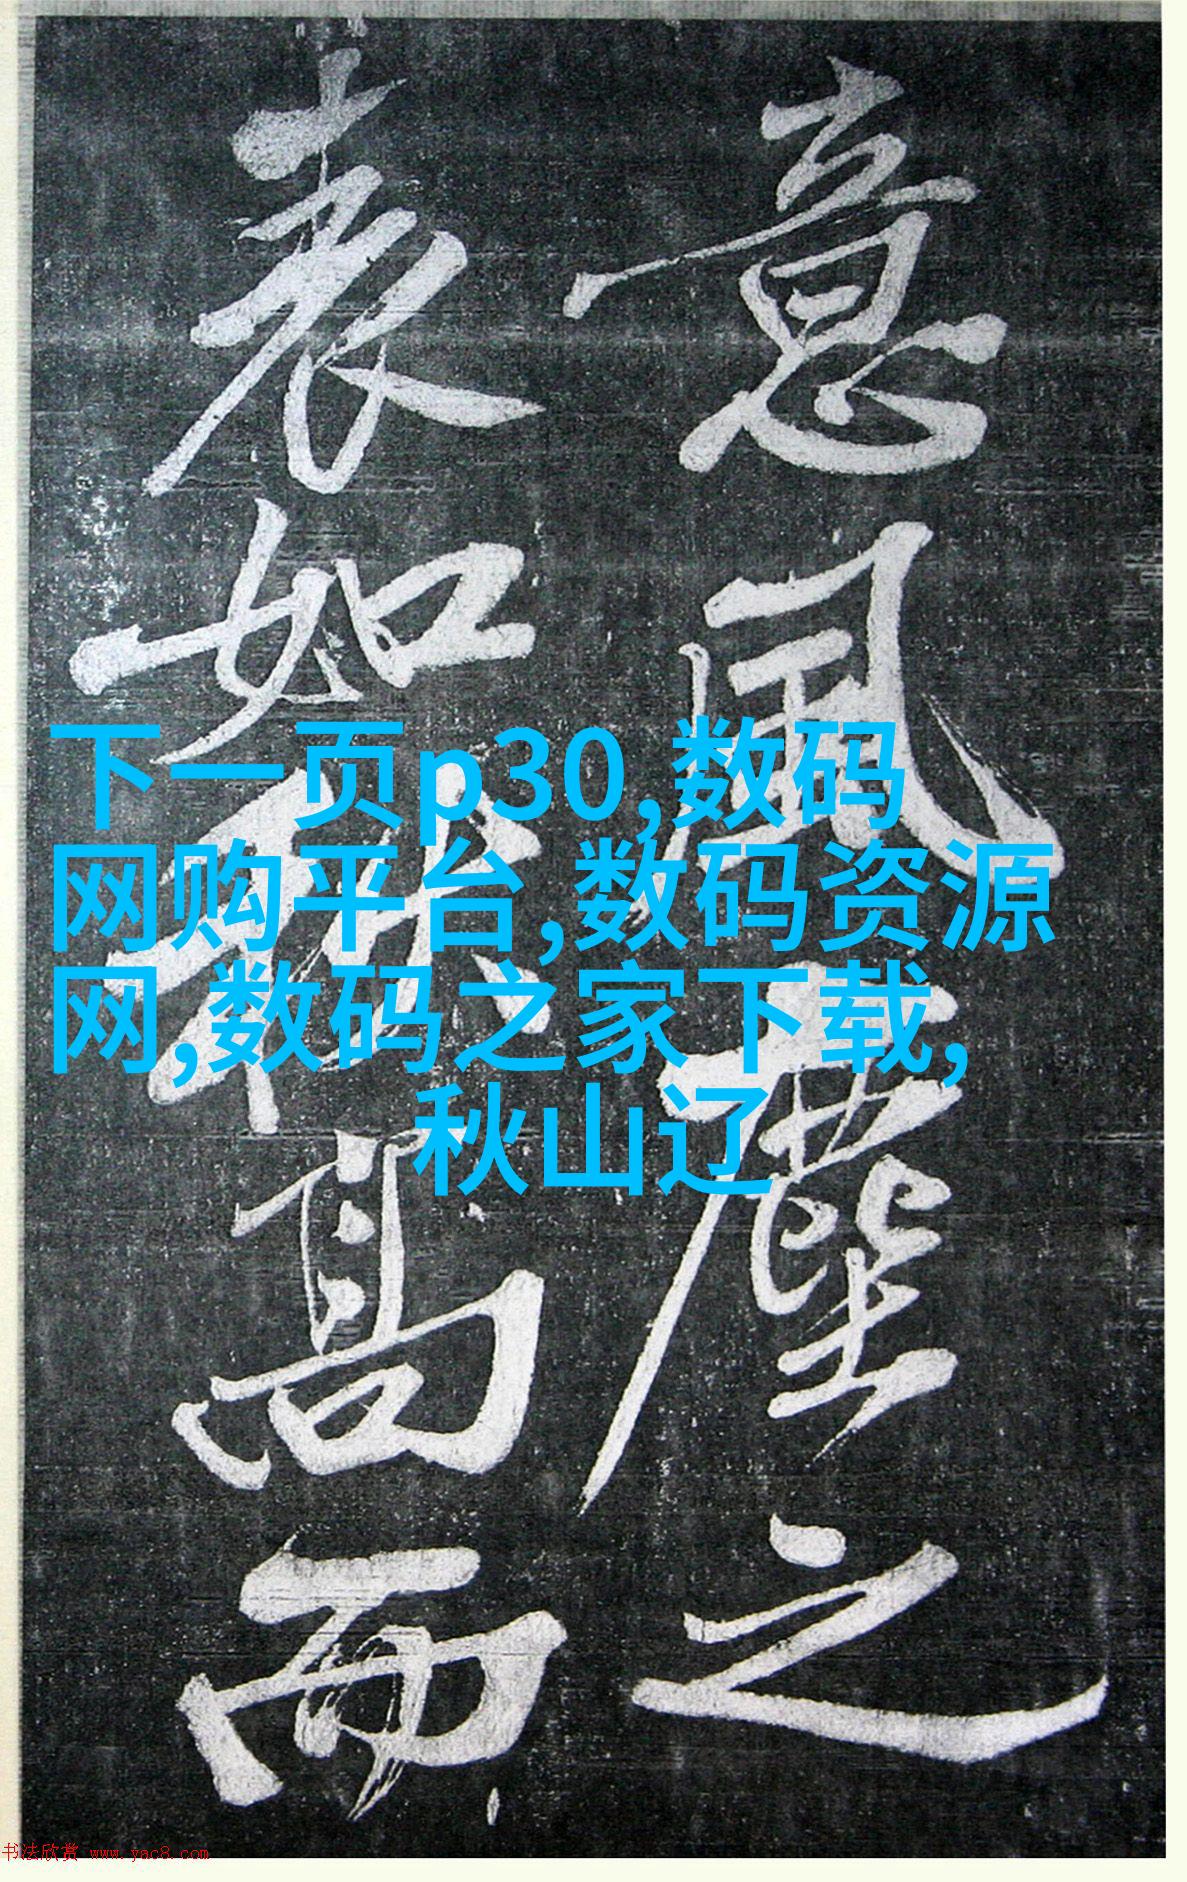 意風塵之
表如秋高而
下一页p30,数码
网购平台,数码资源
网,数码之家下载,
秋山辽
书法欣赏 www.yac8.com